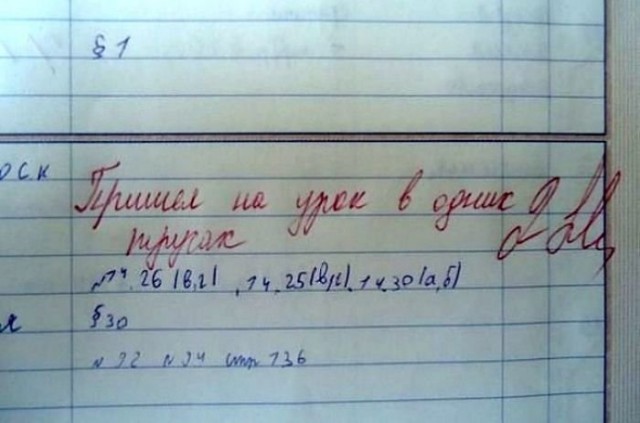 § 1
Пришел на урок в одних 2
трусах
№ 14.26 (в,г), 14.25(в,г), 14.30(а,б)
§ 30
№ 92 № 94 стр 136